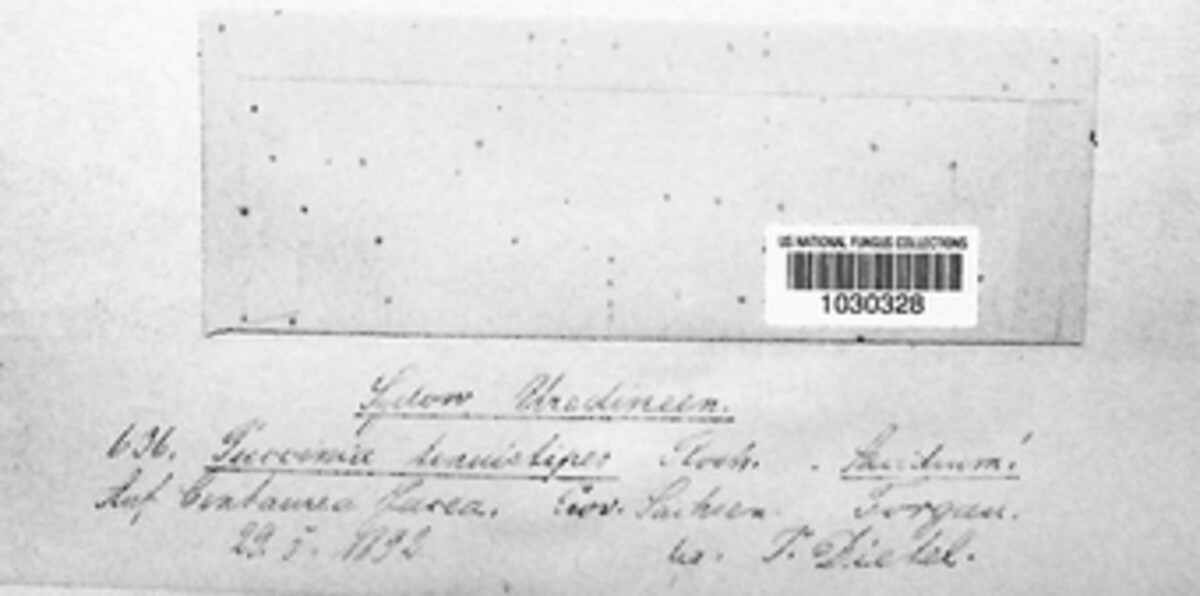 US NATIONAL FUNGUS COLLECTIONS
1030328
Sydow Uredineen.
636. Puccinia tenuistipes Rostr. Aecidium!
Auf Centaurea Jacea. Prov. Sachsen. Torgau.
29. 5. 1892 leg. P. Dietel.